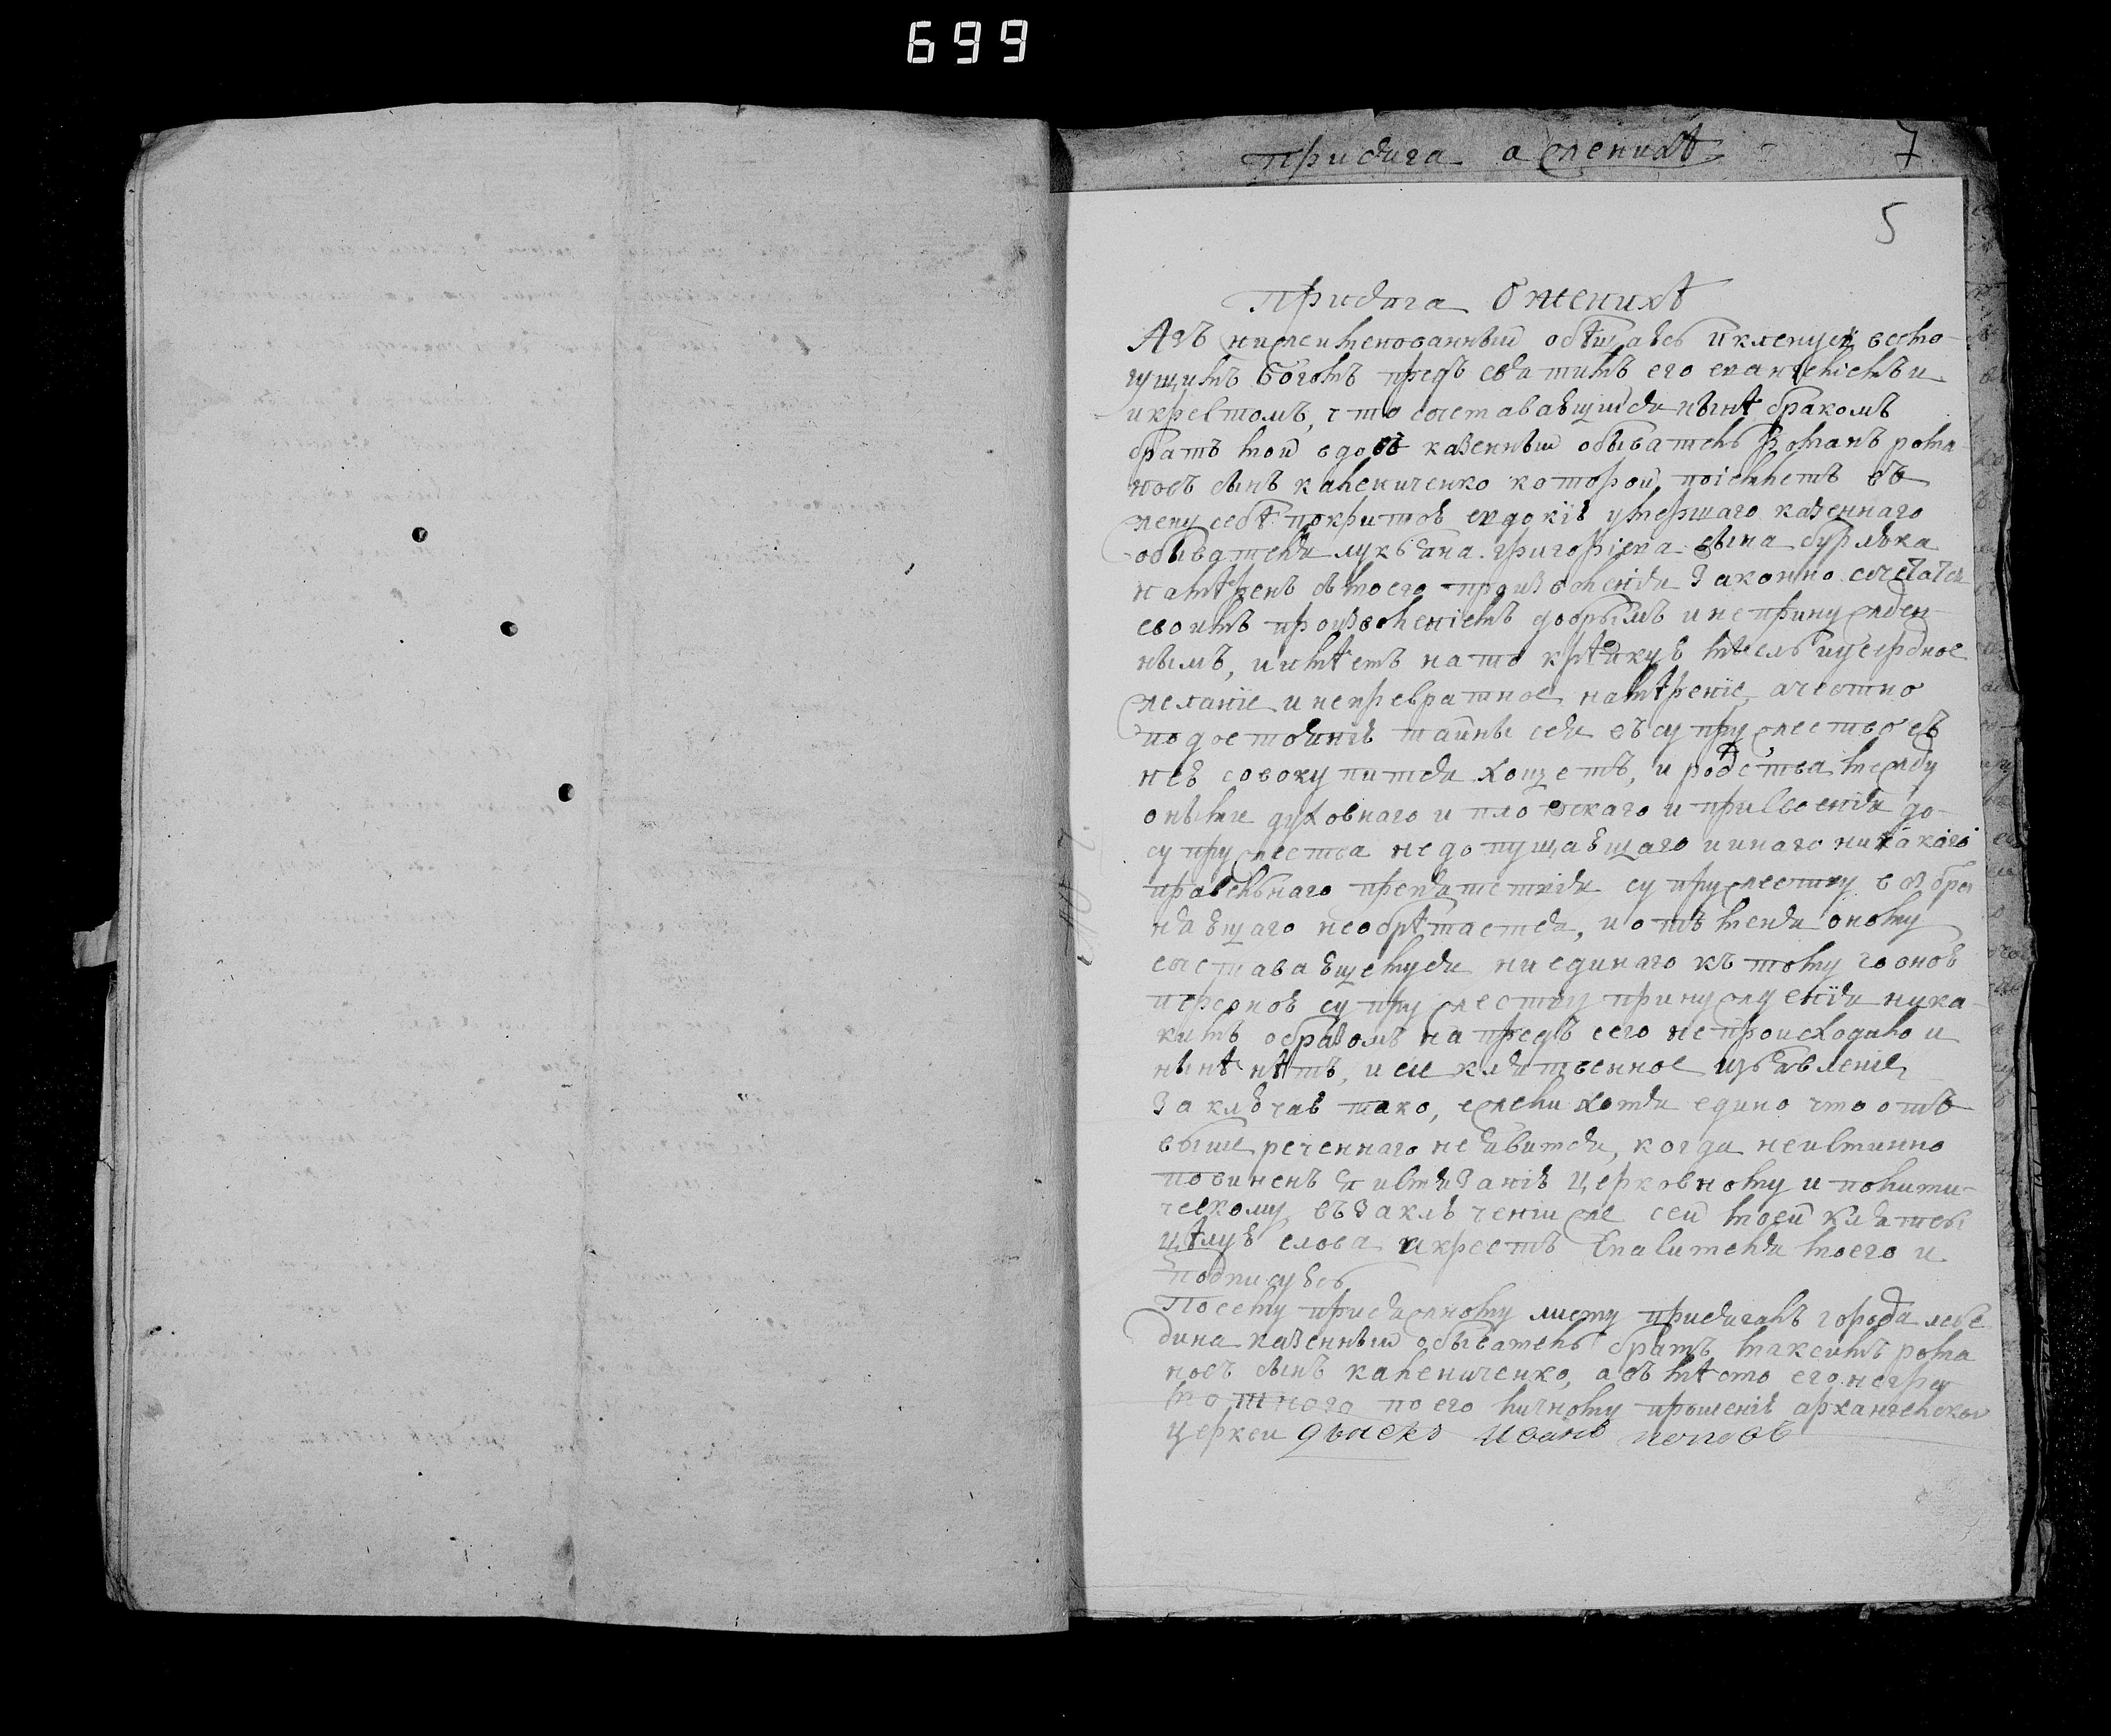 699
присяга о женихѣ
7
5
присяга о женихѣ
Азъ нижеименованный обѣщаюсь и кленуся всемо-
гущимъ богомъ предъ святымъ его евангелиемъ и
и крестомъ, что сочетавающийся нынѣ бракомъ
братъ мой вдовъ казенный обыватель романъ рома
новъ сынъ каленниченко которой поіемлетъ въ
жену себѣ покритою евдокію умершаго казеннаго
обывателя лукьяна григоріева сына бурляка
намѣренъ съ моего произволенія законно сочетатся
своимъ произволеніемъ добрымъ и не принужден-
нымъ, и имѣетъ на то крѣпкую мысль и усердное
желаніе и непревратное намѣреніе, а честно
по достоинію тайны сея въ супружество съ
нею совокупится хощетъ, и родства между
онѣми духовнаго и плотскаго и присвоенія до
супружества недопущающаго и инаго никакого
правельнаго препятствія супружеству возбра
няющаго необрѣтается, и отъ меня оному
сочетавающемуся ни единаго къ тому со оною
персоною супружеству принужденія ника-
кимъ образомъ на предъ сего не происходило и
нынѣ нѣтъ, и сие клятвенное изъявленіе
заключаю тако, ежели хотя едино что отъ
выше реченнаго неявится, когда неистинно
повиненъ я истязанію церковному и полити-
ческому въ заключеніи же сей моей клятвы
цѣлую слова и крестъ спасителя моего и
подписуюсь
По сему присяжному листу присягалъ города лебе
дина казенный обыватель братъ максимъ рома
новъ сынъ каленниченко, а въмѣсто его негра
мотного по его личному прошенію архангельской
церкви дьячекъ иванъ поповъ